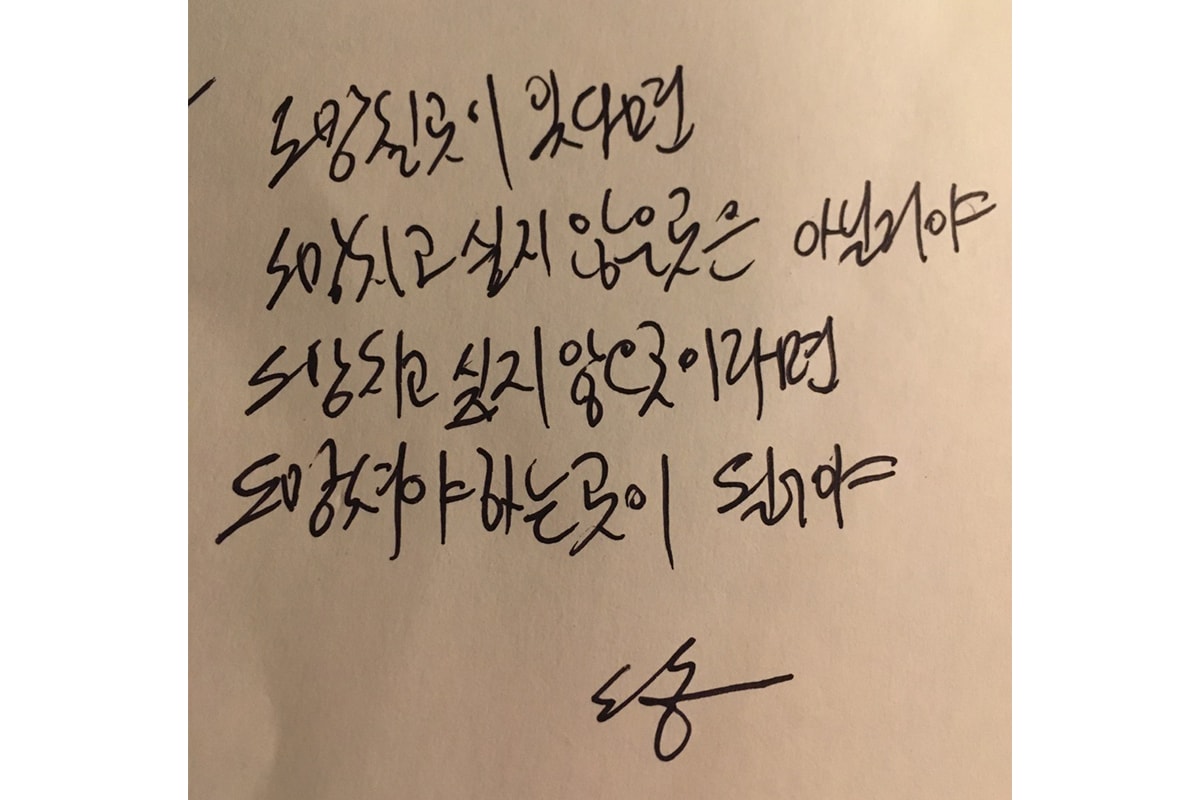 도망칠곳이 있다면
도망치고 싶지 않은곳은 아닐거야
도망치고 싶지않은곳이라면
도망쳐야하는곳이 될거야